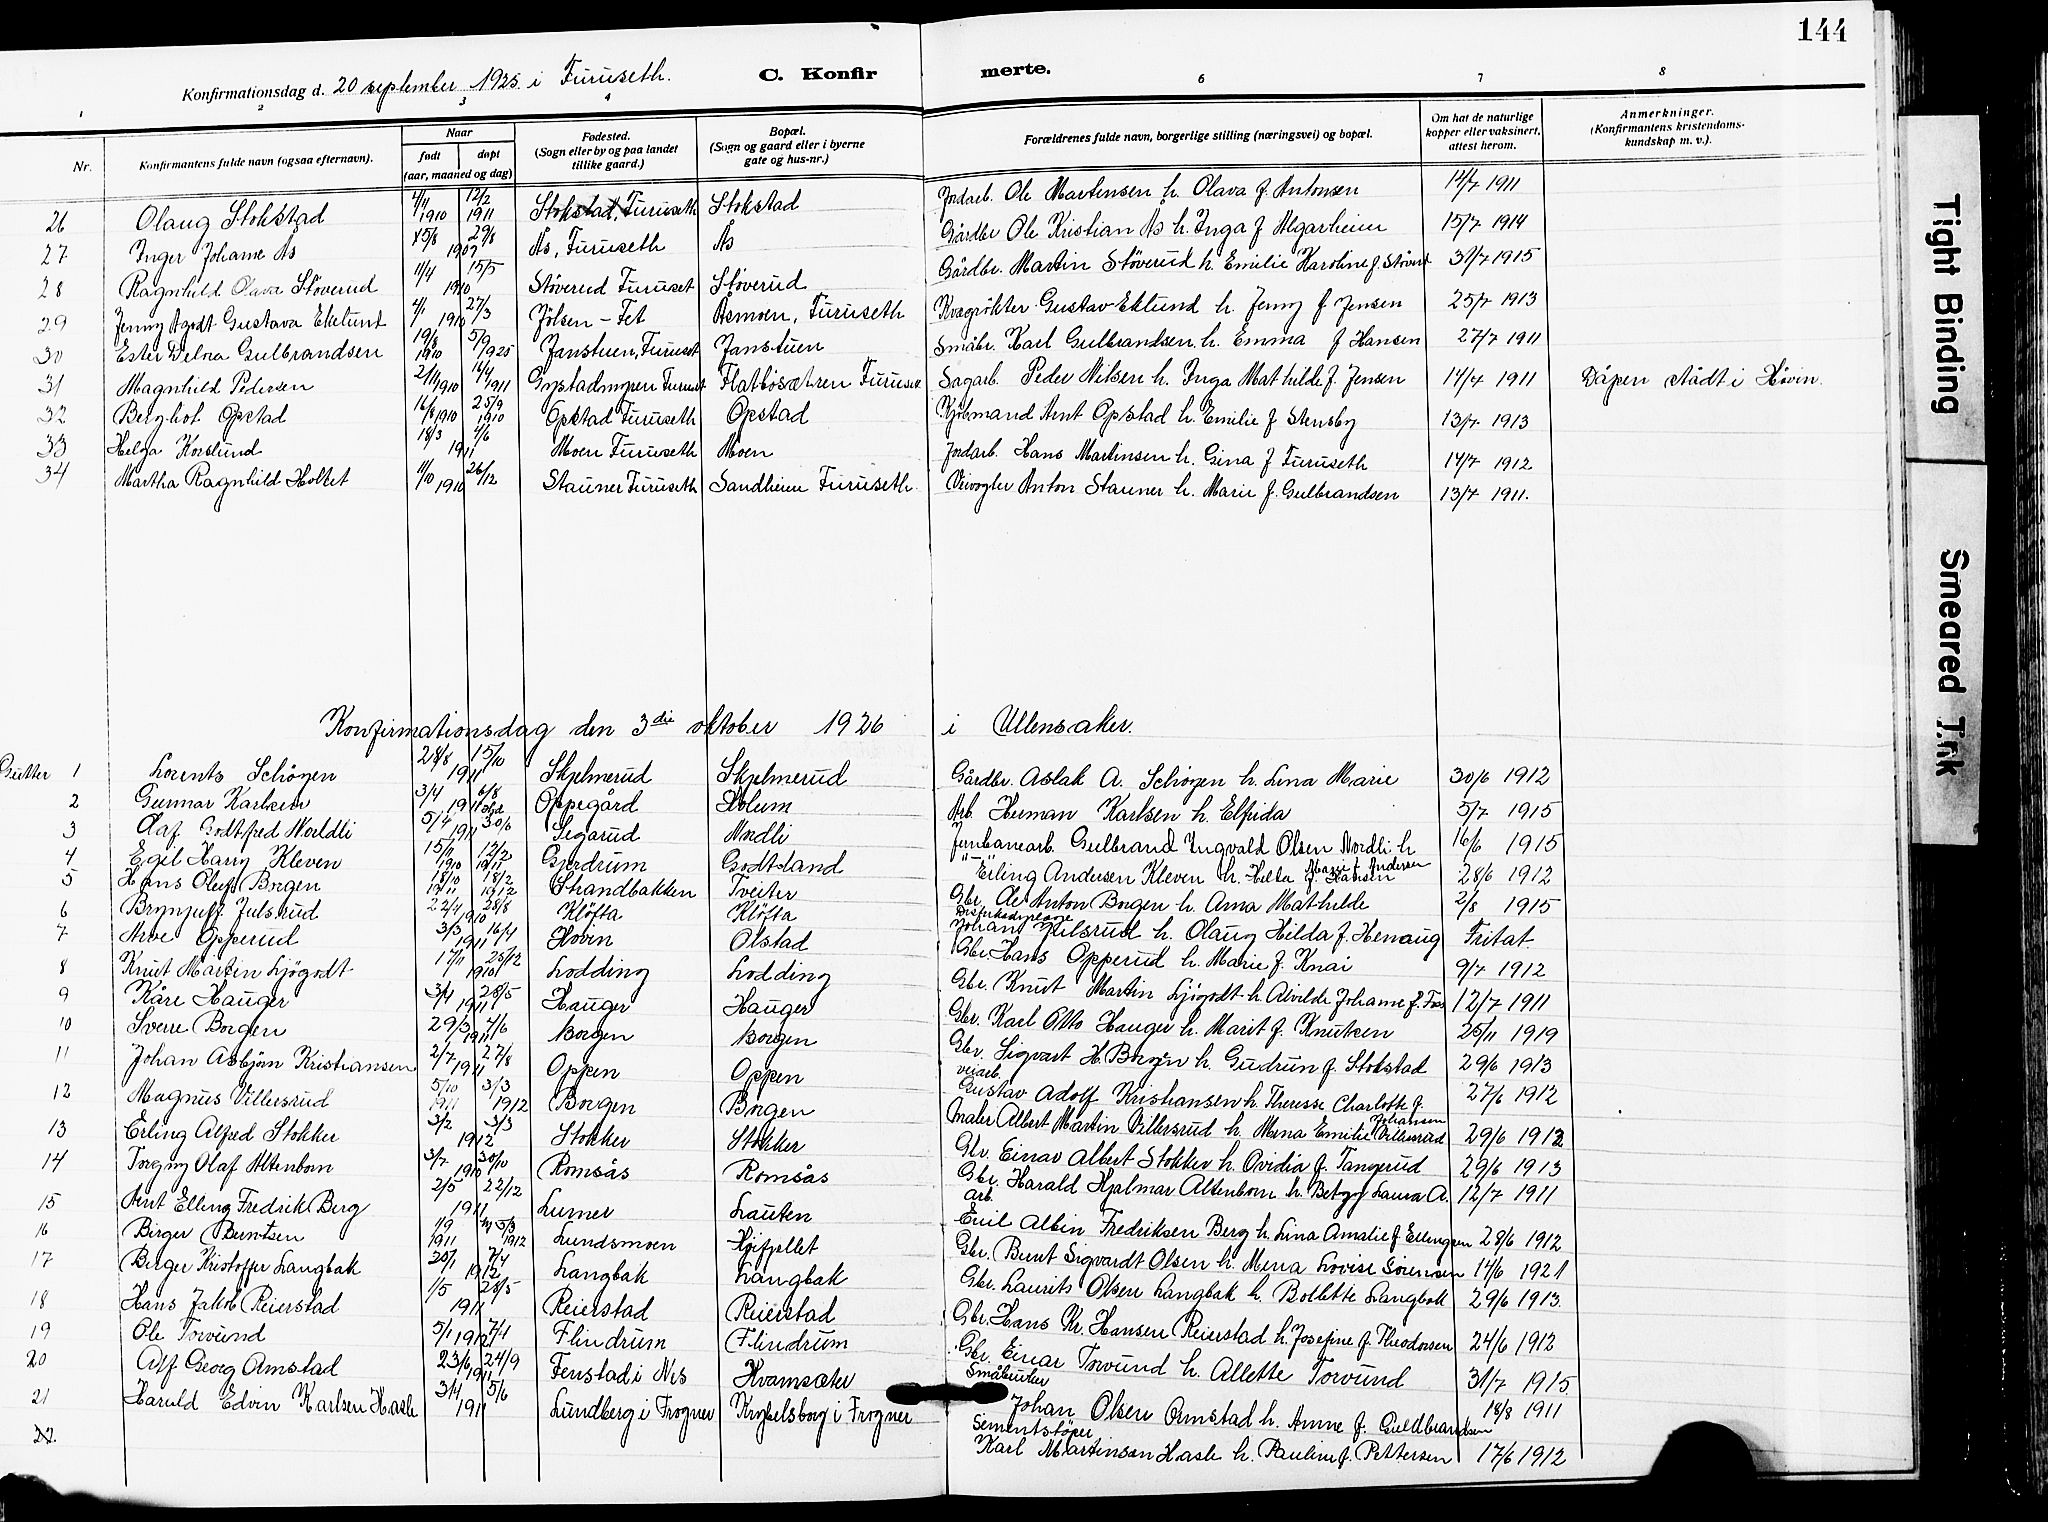 144
Konfirmationsdag d. 20 september 1925. i Furuseth.
C. Konfirmerte.
1 2 3 4 6 7 8
Nr.
Konfirmantens fulde navn (ogsaa efternavn).
Naar
født døpt
(aar, maaned og dag)
Fødested.
(Sogn eller by og paa landet
tillike gaard.)
Bopæl.
(Sogn og gaard eller i byerne
gate og hus-nr.)
Forældrenes fulde navn, borgerlige stilling (næringsvei) og bopæl.
Om hat de naturlige
kopper eller vaksinert,
attest herom.
Anmerkninger.
(Konfirmantens kristendoms-
kundskap m. v.).
26 Olaug Stokstad 4/4 1910 12/2 1911 Stokstad, Furuseth Stokstad Jordarb. Ole Martinsen h. Olava f Antonsen 14/7 1911
27 Inger Johanne Ås 29/8 1909 Ås, Furuseth Ås Gårdbr Ole Kristian Ås h. Inga f Algarheim 15/7 1914
28 Ragnhild Olava Støverud 11/4 15/5 1910 Støverud Furuset Støverud Gårdbr. Martin Støverud h. Emilie Karoline f. 31/7 1915
29 Jenny Gustava Eklund 27/3 1910 Jølsen - Fet Åsmoen, Furuseth Kvegrøkter Gustav Eklund h. Jenny f Jensen 25/7 1913
30 Ester Gulbrandsen 19/8 1910 5/9 1925 Janstuen, Furuset Janstuen Småbr. Karl Gulbrandsen h. Emma f Hansen 27/7 1911
31 Magnhild Pedersen 2/11 1910 16/4 1911 Gystadmyren Furuset Flatbøsætren Furuset Sagarb. Peder Nilsen h. Inga Mathilde f. Jensen 14/7 1911 Dåpen stådt i Hovin.
32 Bergliot Opstad 16/8 1910 25/9 1910 Opstad Furuseth Opstad Kjøbmand Arnt Opstad h. Emilie f Stensby 13/7 1913
33 Helga Korslund 18/3 4/6 1911 Moen Furuseth Moen Jordarb. Hans Martinsen h. Gina f Furuseth 14/7 1912
34 Martha Ragnhild Holtet 11/10 26/12 1910 Stauner Furuseth Sandheim Furuseth Veivogter Anton Stauner h. Marie f. Gulbrandsen 13/7 1911.
Konfirmationsdag den 3die oktober 1926 i Ullensaker.
Gutter 1 Lorents Schøyen 28/8 15/10 1911 Skjelmerud Skjelmerud Gårdbr. Aslak A. Schøyen h. Lina Marie 30/6 1912
2 Gunnar Karlsen 3/4 6/8 1911 Oppegård Holum Arb. Herman Karlsen h. Elfrida 5/7 1915
3 Olaf Godtfred Nordli 5/4 30/6 1911 Segarud Nordli Jernbanearb. Gulbrand Ingvald Olsen Nordli h. Marie f. Andersen 16/6 1915
4 Egil Harry Kleven 15/11 1910 12/2 1911 Gjerdrum Godtland "— Erling Andersen Kleven h. Helta f. Hansen 28/6 1912
5 Hans Oluf Borgen 18/10 1911 18/2 1912 Strandbakken Tveiter Gbr. Ole Anton Borgen h. Anna Mathilde 2/8 1915
6 Brynjulf Julsrud 22/4 28/8 1910 Kløfta Kløfta Johan Julsrud h. Olaug Hilda f. Henaug Fritat
7 Arve Opperud 3/3 16/4 1911 Hovin Olstad Gbr. Hans Opperud h. Marie f. Knai 9/7 1912
8 Knut Martin Ljøgodt 17/11 25/12 1910 Lodding Lodding Gbr. Knut Martin Ljøgodt h. Alvilde Johanne f. Foss 12/7 1911
9 Kåre Hauger 3/4 28/5 1911 Hauger Hauger Gbr. Karl Otto Hauger h. Marit f. Knutsen 25/11 1919
10 Sverre Borgen 29/3 4/6 1911 Borgen Borgen Gbr. Sigvart H. Borgen h. Gudrun f. Stokstad 29/6 1913
11 Johan Asbjørn Kristiansen 2/7 27/8 1911 Oppen Oppen veiarb. Gustav Adolf Kristiansen h. Theresse Charlotte f Johansen 27/6 1912
12 Magnus Villersrud 5/10 1911 3/3 1912 Borgen Borgen Maler Albert Martin Villersrud h. Mina Emilie Villersrud 29/6 1912
13 Erling Alfred Stokker 3/2 3/3 1912 Stokker Stokker Gbr. Einar Albert Stokker h. Ovidia f. Tangerud 29/6 1913
14 Torgny Olaf Altenborn 3/7 30/10 1910 Romsås Romsås Gbr. Harald Hjalmar Altenborn h. Betzy Laura A. 12/7 1911
15 Arnt Elling Fredrik Berg 2/5 22/12 1911 Lurner Lauten arb. Emil Albin Fredriksen Berg h. Lina Amalie f Ellingsen 28/6 1912
16 Birger Berntsen 1/9 1911 3/3 1912 Lundsmoen Gbr. Bernt Sigvardt Olsen h. Mena Lovise Sørensen 14/6 1921
17 Birger Kristoffer Langbak 20/1 7/4 1912 Langbak Langbak Gbr. Laurits Olsen Langbak h. Bollette Langbak 29/6 1913.
18 Hans Jakob Reierstad 1/5 28/5 1911 Reierstad Reierstad Gbr. Hans Kr. Hansen Reierstad h. Josefine f Theodorsen 24/6 1912
19 Ole Torvund 5/1 7/4 1912 Flindrum Flindrum Gbr. Einar Torvund h. Allette Torvund 31/7 1915
20 Alf Georg Amstad 23/6 24/9 1911 Fenstad i Nes Kvamsæter Småbruker Johan Olsen Amstad h. Anne f. Guldbrandsen 18/8 1911
21 Harald Edvin Karlsen Hasle 3/4 5/6 1911 Lundberg i Frogner Krybelsborg i Frogner Sementstøper Karl Martinsen Hasle h. Pauline f. Pettersen 17/6 1912
22.
Tight Binding
Smeared Ink